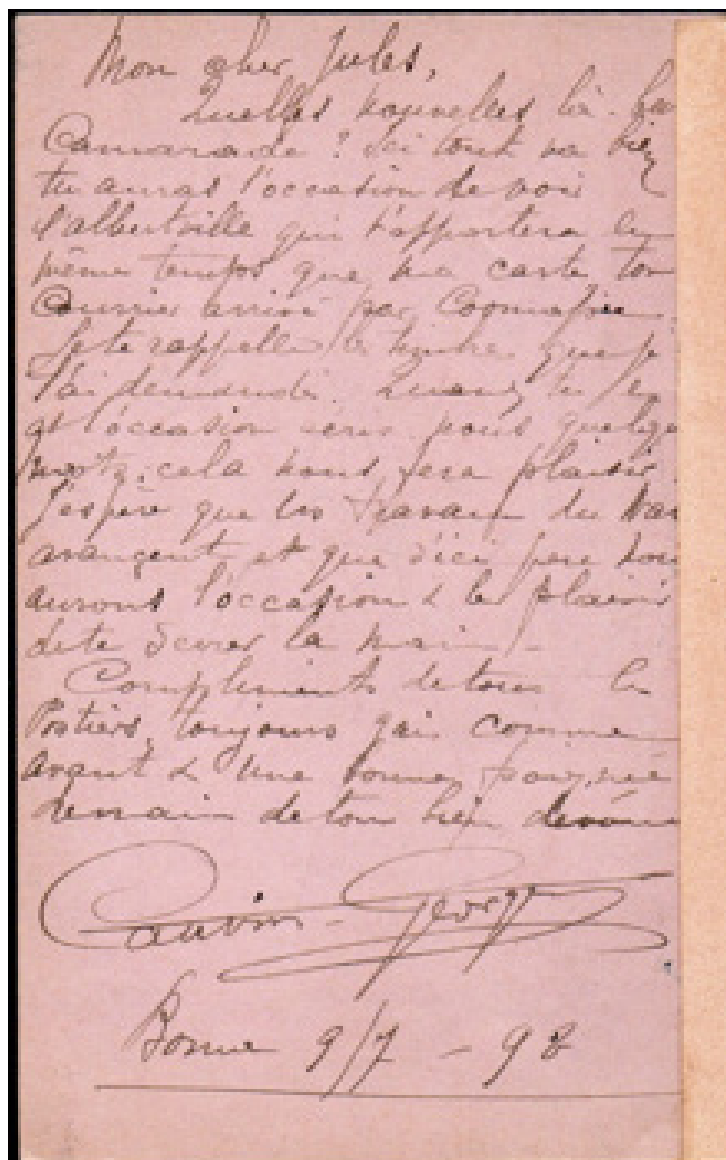 Mon cher Jules,
Quelles nouvelles là-ba
Camarade ? Ici tout va bien
tu auras l'occasion de voir
l'albertville qui t'apportera en
même temps que ma carte, ton
Courrier arrivé par
Je te rappelle le timbre que j
t'ai demandé. Quand tu en
as l'occasion écris nous quelque
mots, cela nous fera plaisir.
J'espère que les travaux du
avancent et que d'ici peu nou
aurons l'occasion & le plaisir
de te serrer la main.
Compliments de tous les
Postiers, toujours gais comme
avant & une bonne poignée
de main de ton bien dévoué
Cauvin George
Boma 9/7 - 98